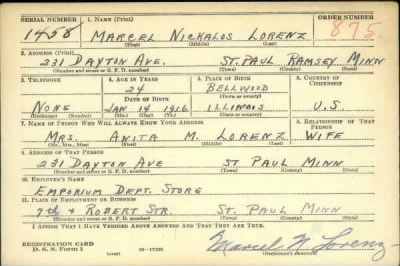 SERIAL NUMBER 1. NAME (Print) ORDER NUMBER
1458 MARCEL NICKALOS LORENZ 875
(First) (Middle) (Last)
2. ADDRESS (Print)
231 DAYTON AVE. ST. PAUL RAMSEY MINN
(Number and street or R. F. D. number) (Town) (County) (State)
3. TELEPHONE 4. AGE IN YEARS 5. PLACE OF BIRTH 6. COUNTRY OF CITIZENSHIP
24 BELLWOOD
DATE OF BIRTH (Town or county)
NONE JAN 14 1916 ILLINOIS U.S.
(Exchange) (Number) (Mo.) (Day) (Yr.) (State or country)
7. NAME OF PERSON WHO WILL ALWAYS KNOW YOUR ADDRESS 8. RELATIONSHIP OF THAT PERSON
MRS. ANITA M. LORENZ WIFE
(Mr., Mrs., Miss) (First) (Middle) (Last)
9. ADDRESS OF THAT PERSON
231 DAYTON AVE ST PAUL MINN
(Number and street or R. F. D. number) (Town) (County) (State)
10. EMPLOYER'S NAME
EMPORIUM DEPT. STORE
11. PLACE OF EMPLOYMENT OR BUSINESS
7th & ROBERT STR. ST. PAUL MINN
(Number and street or R. F. D. number) (Town) (County) (State)
I AFFIRM THAT I HAVE VERIFIED ABOVE ANSWERS AND THAT THEY ARE TRUE.
REGISTRATION CARD
D. S. S. Form 1 (over) Marcel N. Lorenz
(Registrant's signature)